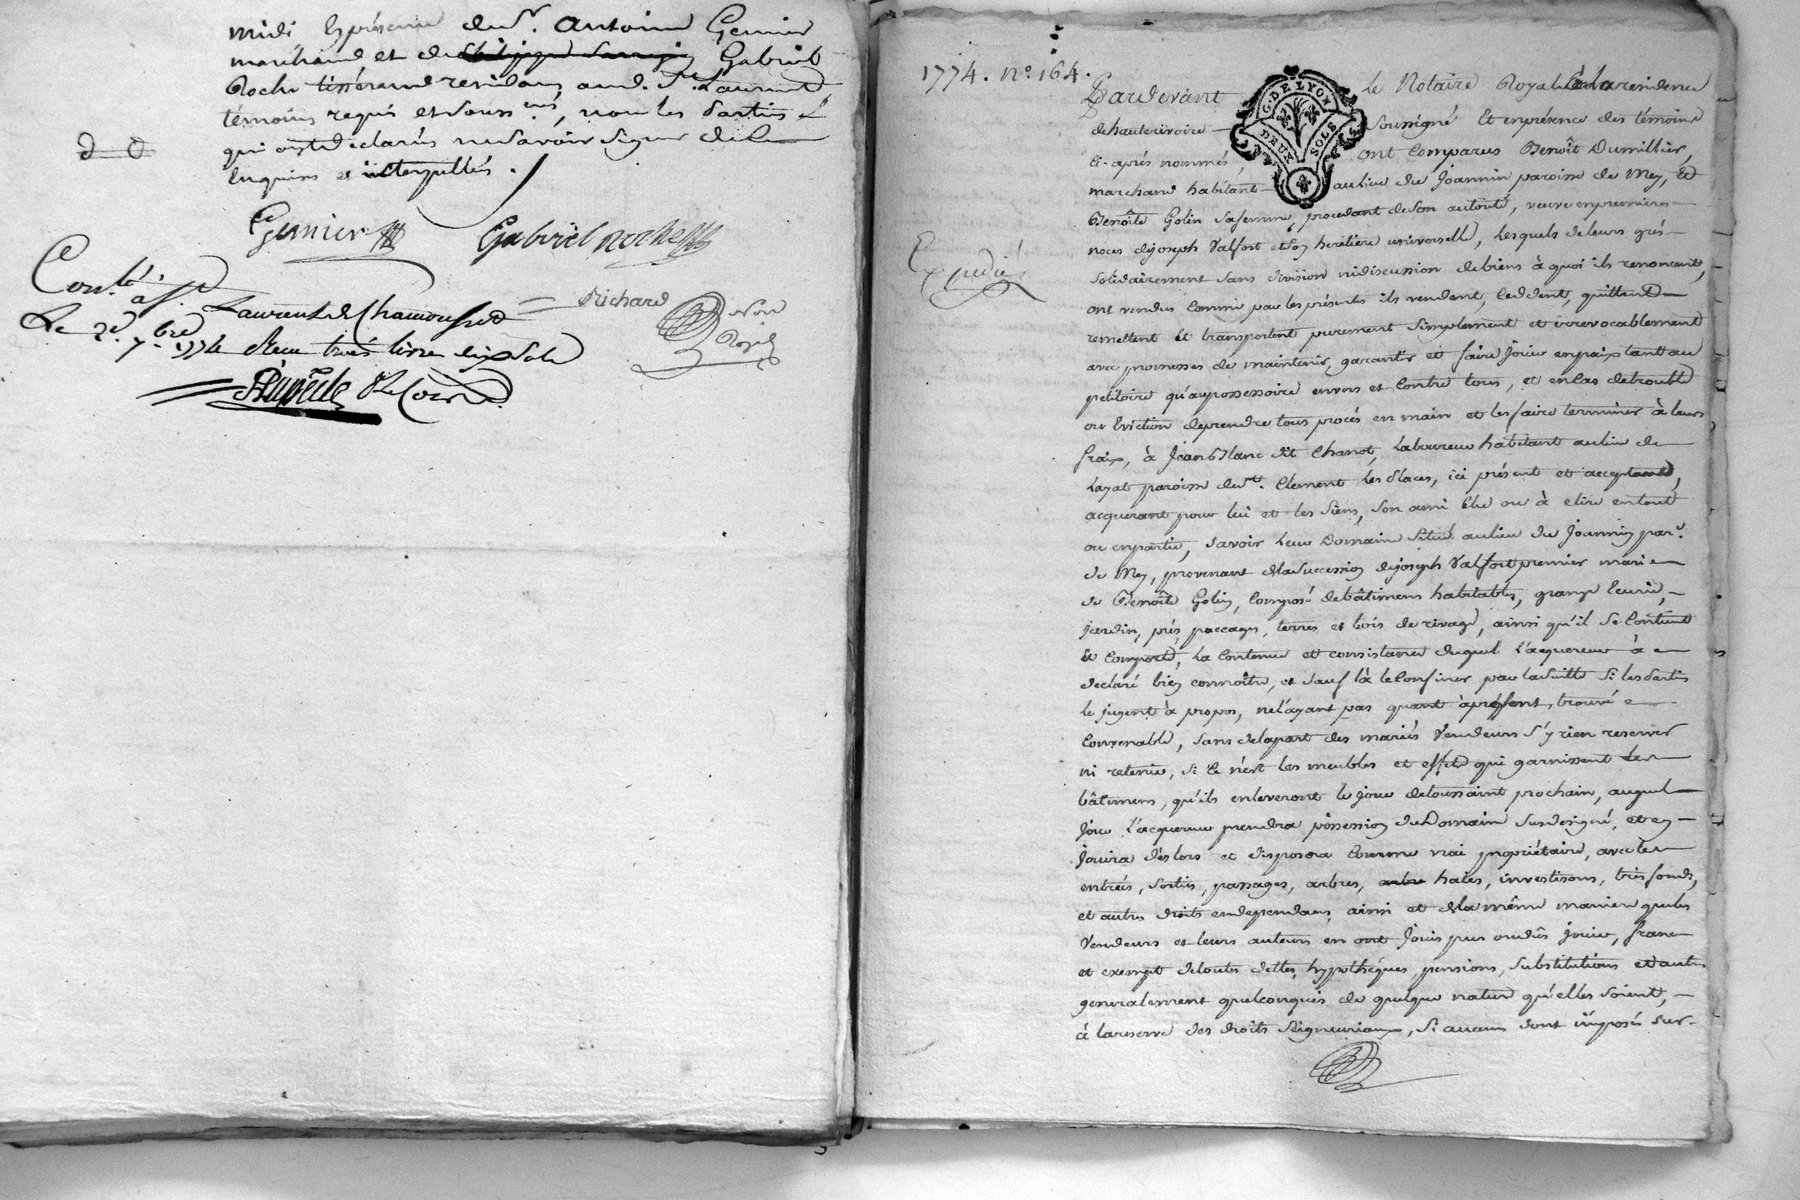 midi En présence du Sr. Antoine Genier
marchand, et de Philippe Gabriel
Roche tisserand residans aud. St. Laurent
témoins requis et souss.nés, non les Parties
qui ont declarés ne savoir signer de ce
Enquis et interpellés.
Genier Gabriel Roche
Con.lé à St.
Laurent de Chamousset Richard Not.
Le 2e. 7.bre 1774 Reçu trois livres dix sols
Royal
1774. N.o 164.
G. DE LYON
DEUX SOLS
Expedié
Pardevant Le Notaire Royal à la residence
de hauterivoire Soussigné Et en présence des témoins
Ci-après nommés, ont Comparus Benoît Dumillier,
marchand habitant au lieu du Joannin paroisse de Mey, Et
Benoîte Golin sa femme, procedant de son autorité, veuve en premieres
noces de joseph Valfort et son heritiere universelle, Lesquels de leurs grés
Solidairement sans division ni discussion de biens à quoi ils renoncent,
ont vendus Comme par les présents ils vendent, Ceddent, quittent
remettent Et transportent purement Simplement et irrevocablement
avec promesses de maintenir, garantir et faire Jouir en paix tant au
petitoire qu'au possessoire envers et Contre tous, et en Cas de trouble
ou Eviction de prendre tous procés en main et les faire terminer à leurs
fraix, à Jean Blanc dit Chanot, Laboureur habitant au lieu de
Layat paroisse de St. Clement Les Places, ici présent et acceptant,
acquerant pour lui et les siens, son ami Elu ou à elire en tout
ou en partie, Savoir Leur Domaine Situé au lieu du Joannin par.e
de Mey, provenant de la Succession de joseph Valfort premier mari
de Benoîte Golin, Composé de bâtimens habitables, grange Ecurie,
Jardin, prés, paccages, terres et bois de rivage, ainsi qu'il Se Contient
Et Comporte, La Contenue et consistance duquel L'acquereur à
declaré bien connoître, et Sauf à le Confiner par la Suitte Si les Parties
le jugent à propos, ne l'ayant pas quant à présent, trouvé
Convenable, sans de la part des mariés Vendeurs S'y rien reserver
ni retenir, Si Ce n'est les meubles et effets qui garnissent Les
bâtimens, qu'ils enleveront le jour de toussaint prochain, auquel
Jour L'acquereur prendra possession du Domaine Susdesigné, et en
Jouira dès lors et disposera Comme vrai propriétaire, avec les
entrées, Sorties, passages, arbres, arbre haïes, investisons, très fonds,
et autres droits en dependans, ainsi et de la même maniere que les
Vendeurs et leurs auteurs en ont Jouis pus ou dûs Jouir, franc
et exempt de toutes dettes, hypothéques, pensions, Substitutions et autres
generalement quelconques de quelque nature qu'elles soient,
à la reserve des droits Seigneuriaux, Si aucuns sont imposés sur